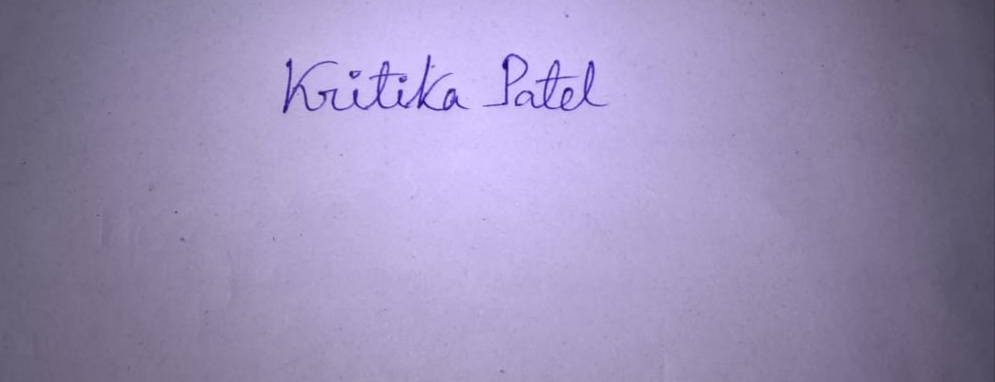 Kritika Patel